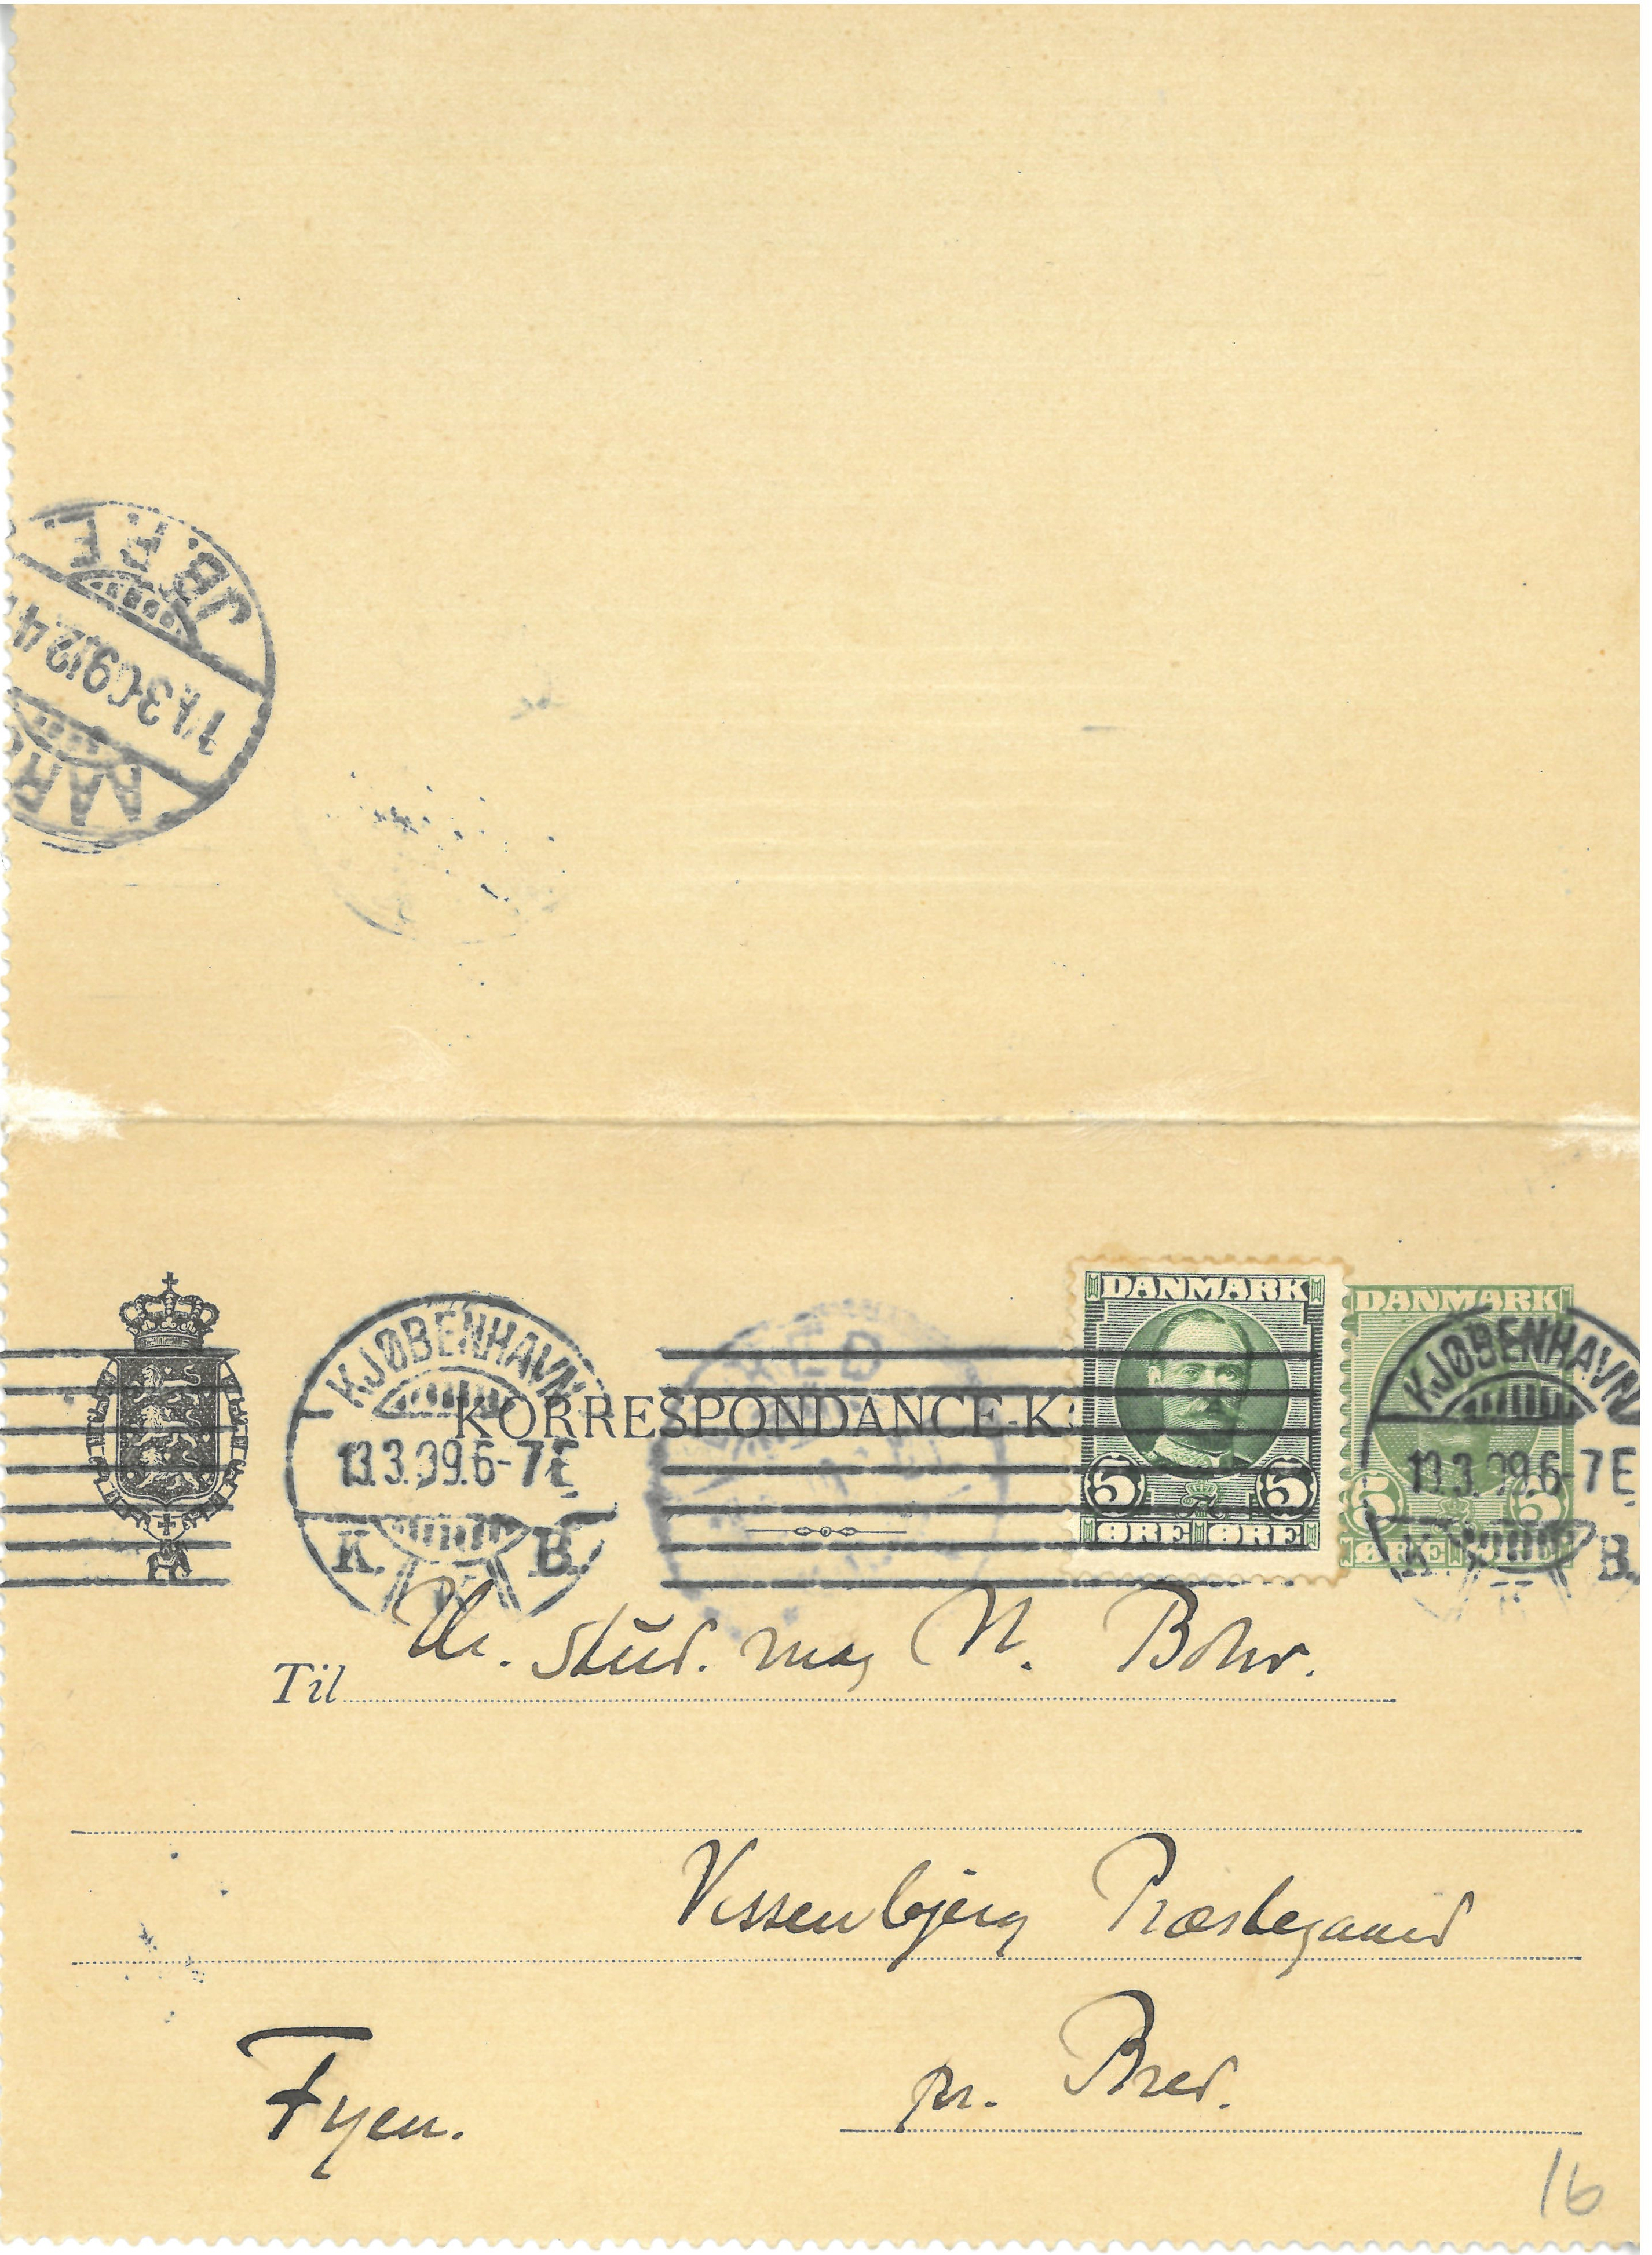 JB.P.E.
KORRESPONDANCE-K
KJØBENHAVN
13.3.09.6-7E
K. B.
DANMARK
5 5
ØRE ØRE
DANMARK
5 5
ØRE
KJØBENHAVN
13.3.09.6-7E
K. B.
Til Hr. stud. mag N. Bohr.
Vissenbjerg Præstegaard
Fyen. pr. Bred.
16